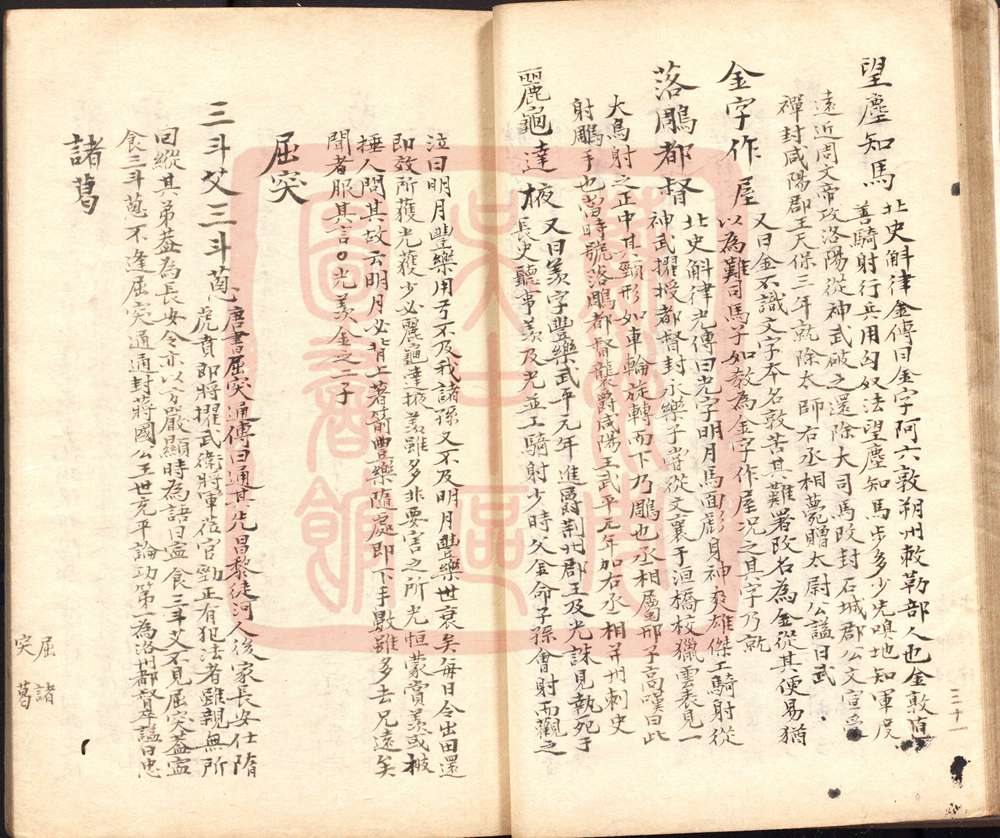 望塵知馬
北史斛律金傳曰金字阿六敦朔州敕勒部人也金敦直
善騎射行兵用匈奴法望塵知馬步多少嗅地知軍度
遠近周文帝攻洛陽從神武破之還除大司馬改封石城郡公文宣受
禪封咸陽郡王天保三年就除太師右丞相薨贈太尉公謚曰武
金字作屋
又曰金不識文字本名敦苦其難署改名為金從其便易猶
以為難司馬子如教為金字作屋况之其字乃就
落鵰都督
北史斛律光傳曰光字明月馬面彪身神爽雄傑工騎射從
神武擢授都督封永樂子嘗從文襄于洹橋校獵雲表見一
大鳥射之正中其頸形如車輪旋轉而下乃鵰也丞相屬邢子高嘆曰此
射鵰手也當時號落鵰都督襲爵咸陽王武平元年加右丞相并州刺史
麗龜達掖
又曰羡字豐樂武平元年進爵荆州郡王及光誅見執死于
長史聽事羡及光並工騎射少時父金命子孫會射而觀之
泣曰明月豐樂用弓不及我諸孫又不及明月豐樂世衰矣每日令出田還
即效所獲光獲少必麗龜達掖羡雖多非要害之所光恒蒙賞羡或被
捶人問其故云明月必背上著箭豐樂隨處即下手數雖多去兄遠矣
聞者服其言○光羡金之二子
屈突
三斗艾三斗葱
唐書屈突通傳曰通其先昌黎徒河人後家長安仕隋
虎賁郎將擢武衛將軍涖官勁正有犯法者雖親無所
回縱其弟蓋為長安令亦以方嚴顯時為語曰寧食三斗艾不見屈突蓋寧
食三斗葱不逢屈突通通封蔣國公王世充平論功第一為洛州都督卒謚曰忠
諸葛
三十一
屈突
諸葛